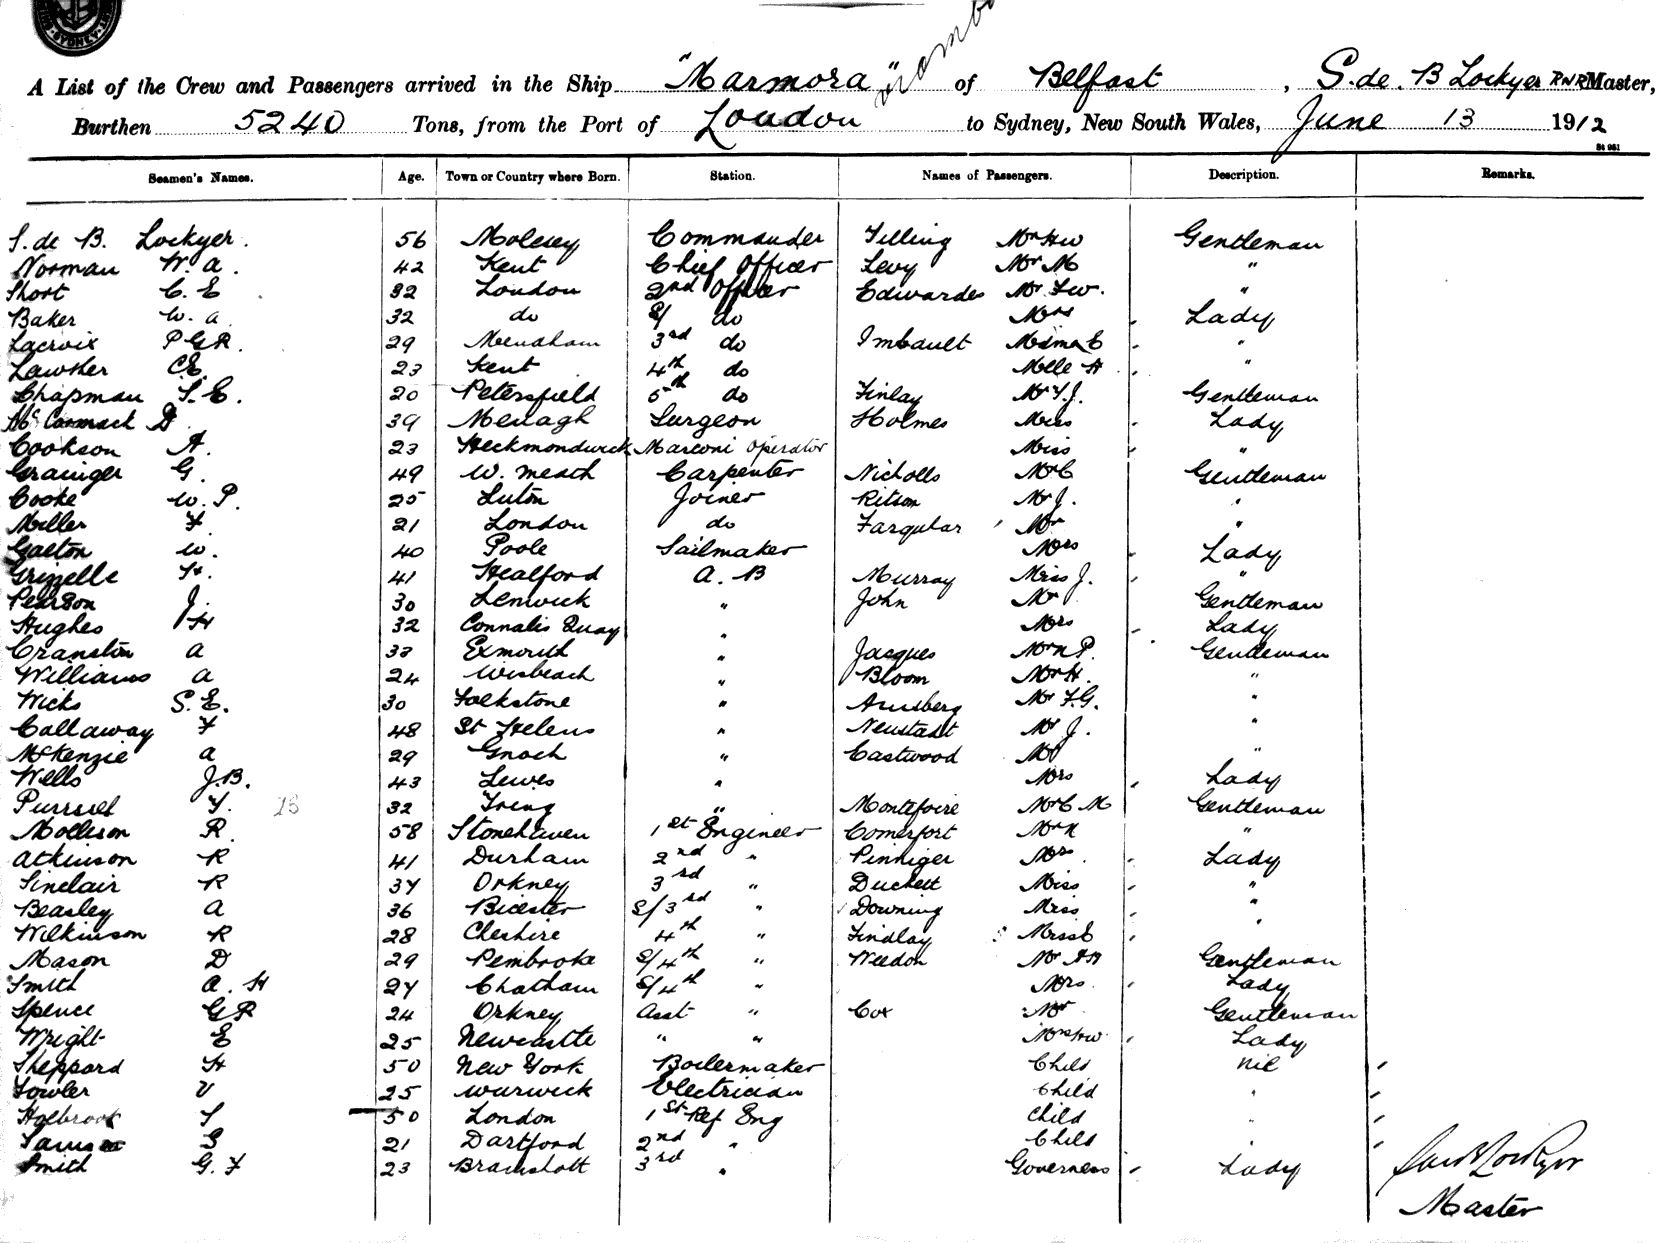 SYDNEY
A List of the Crew and Passengers arrived in the Ship "Marmora" of Belfast, S. de. B Lockyer RNR Master,
Burthen 5240 Tons, from the Port of London to Sydney, New South Wales, June 13 1912
St 981
Seamen's Names. Age. Town or Country where Born. Station. Names of Passengers. Description. Remarks.
S. de B. Lockyer. 56 Molesey Commander Tilling Mr HW Gentleman
Norman W. a. 42 Kent Chief Officer Levy Mr M "
Short C. E 32 London 2nd Officer Edwardes Mr F.W. "
Baker W. a 32 do S/ do Mrs Lady
Lacroix P G R. 29 Mendham 3rd do Imbault Mdme E "
Lawther C.E. 23 Kent 4th do Melle A "
Chapman S. E. 20 Petersfield 5th do Finlay Mr Y.J. Gentleman
McCormack D 39 Menagh Surgeon Holmes Miss Lady
Cookson A. 23 Heckmondwick Marconi Operator Miss "
Grainger G. 49 W. Meath Carpenter Nicholls Mr C Gentleman
Cooke W. P. 25 Luton Joiner Ritson Mr J. "
Miller F 21 London do Farquhar Mr "
Galton W. 40 Poole Sailmaker Mrs Lady
Grizzelle H. 41 Healford A. B Murray Miss J. "
Pearson J. 30 Lenwick " John Mr Gentleman
Hughes H 32 Connalis Quay " Mrs Lady
Cranston a 33 Exmouth " Jacques Mr P. Gentleman
Williams a 24 Wisbeach " Bloom Mr H. "
Wicks S. E. 30 Folkstone " Arnsberg Mr F.G. "
Callaway F 48 St Helens " Neustadt Mr J. "
McKenzie a 29 " Eastwood Mr "
Wells J.B. 43 Lewes " Mrs Lady
Purssell 32 Tring " Montefoire Mr C M Gentleman
Mollison R. 58 Stonehaven 1st Engineer Comerfort Mr "
Atkinson R 41 Durham 2nd " Pinniger Mrs Lady
Sinclair R 34 Orkney 3rd " Duckett Miss "
Beasley a 36 Bicester S/3rd " Downing Miss "
Wilkinson R 28 Cheshire 4th " Findlay Miss E
Mason D 29 Pembroke S/4th " Weedon Mr Gentleman
Smith a. H 24 Chatham S/4th " Mrs Lady
Spence G R 24 Orkney Asst " Cox Mr Gentleman
Wright E 25 Newcastle " " Mrs HW Lady
Sheppard H 50 New York Boilermaker Child nil
Fowler V 25 Warwick Electrician Child "
Holbrook 50 London 1st Ref Eng Child "
21 Dartford 2nd " Child "
Smith G. F 23 Bramshott 3rd " Governess Lady
Master